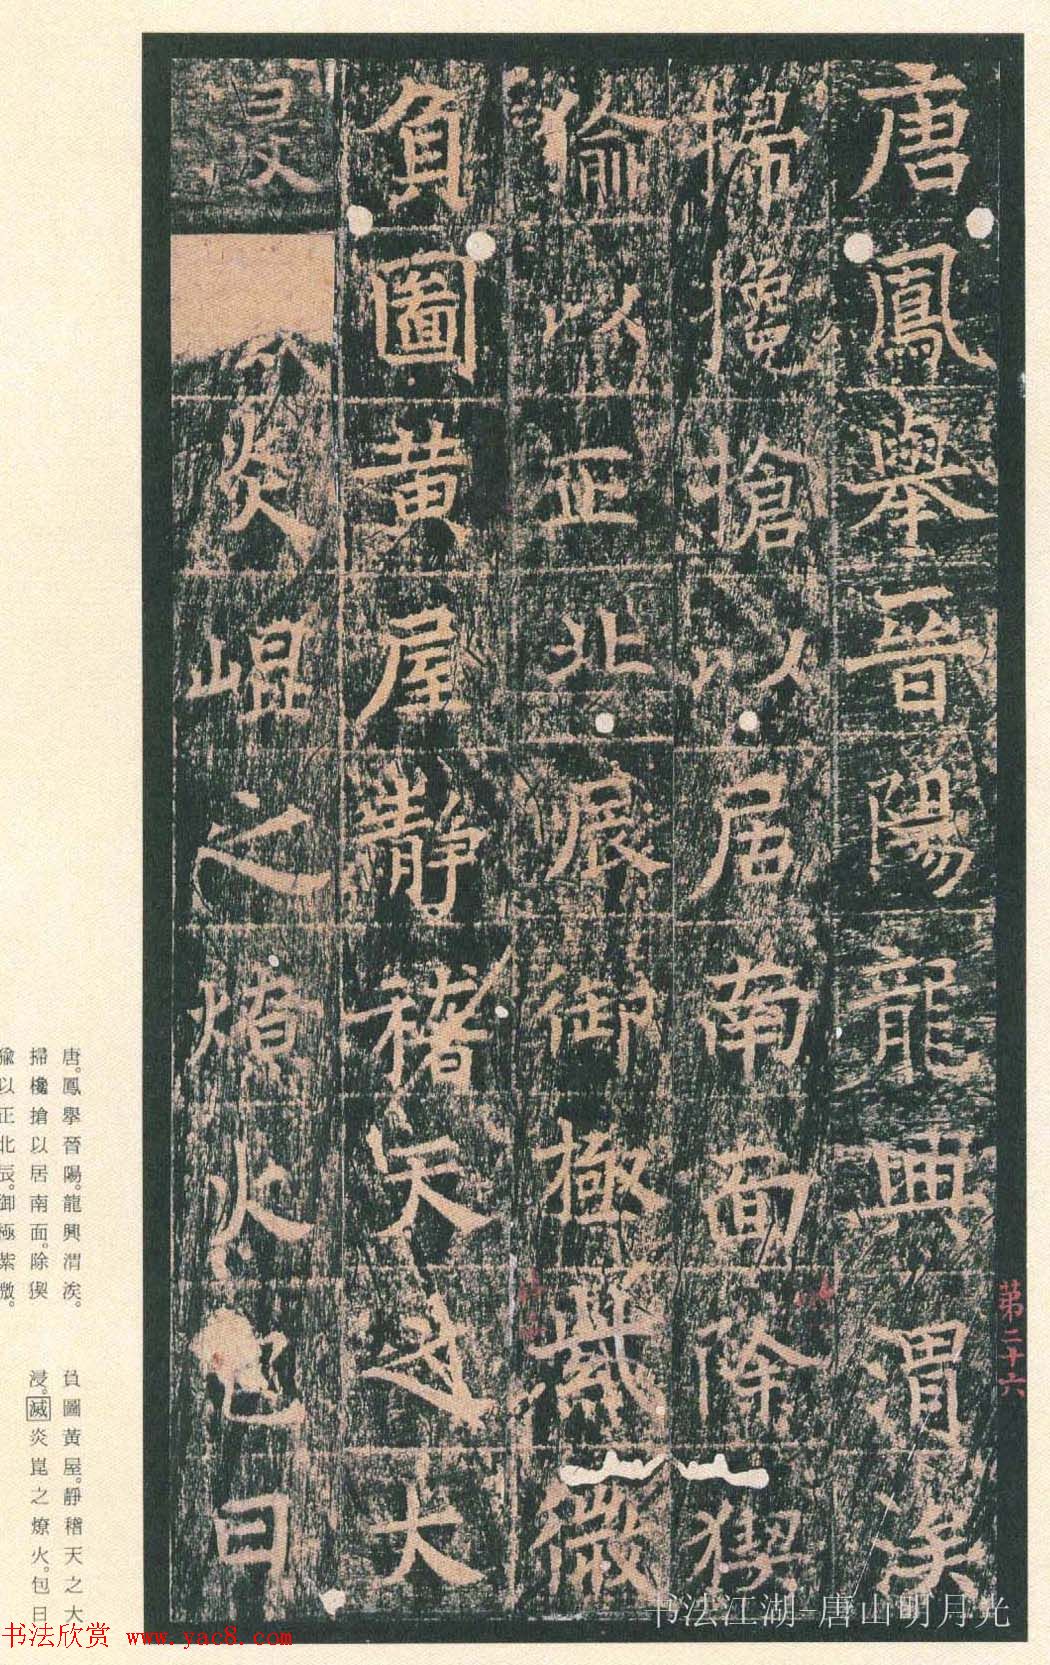 唐鳳舉晉陽龍興渭涘
掃欃搶以居南面除猰
㺄以正北辰御極紫微
負圖黃屋靜稽天之大
浸炎崐之燎火包日
第二十六
唐。鳳舉晉陽。龍興渭涘。
掃欃搶以居南面。除猰
㺄以正北辰。御極紫微。
負圖黃屋。靜稽天之大
浸。滅炎崑之燎火。包日
书法江湖-唐山明月光
书法欣赏 www.yac8.com